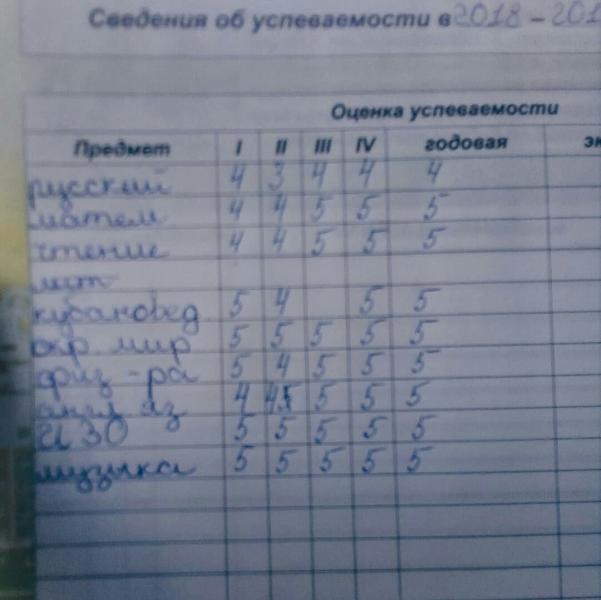 Сведения об успеваемости в 2018 - 201
Оценка успеваемости
Предмет I II III IV годовая эк
русский 4 3 4 4 4
матем 4 4 5 5 5
чтение 4 4 5 5 5
лит
кубановед 5 4 5 5
окр. мир 5 5 5 5 5
физ-ра 5 4 5 5 5
англ яз 4 45 5 5 5
ИЗО 5 5 5 5 5
музыка 5 5 5 5 5